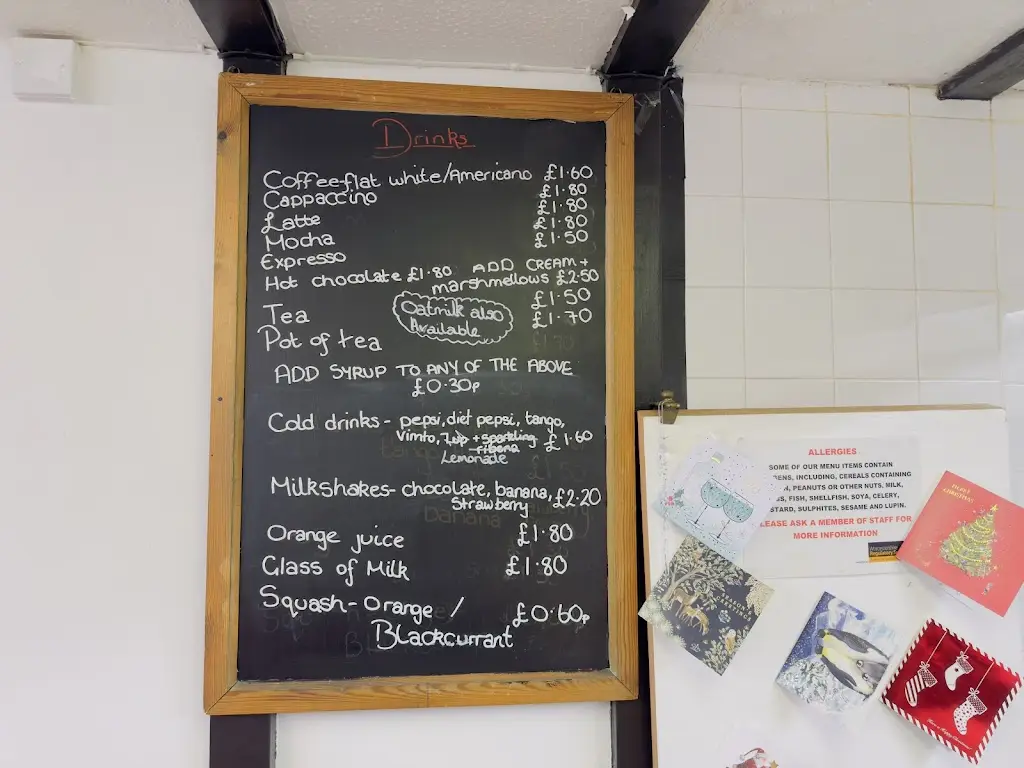 Drinks
Coffee-flat white/Americano £1.60
Cappaccino £1.80
Latte £1.80
Mocha £1.80
Expresso £1.50
Hot chocolate £1.80 ADD CREAM +
marshmellows £2.50
Tea £1.50
Oatmilk also
Available
Pot of tea £1.70
ADD SYRUP TO ANY OF THE ABOVE
£0.30p
Cold drinks - pepsi, diet pepsi, tango,
Vimto, 7up + sparkling £1.60
ribena
Lemonade
Milkshakes - chocolate, banana, £2.20
Strawberry
Orange juice £1.80
Glass of Milk £1.80
Squash - Orange / £0.60p
Blackcurrant
ALLERGIES
SOME OF OUR MENU ITEMS CONTAIN
ENS, INCLUDING, CEREALS CONTAINING
, PEANUTS OR OTHER NUTS, MILK,
S, FISH, SHELLFISH, SOYA, CELERY,
STARD, SULPHITES, SESAME AND LUPIN.
LEASE ASK A MEMBER OF STAFF FOR
MORE INFORMATION
SEASON'S
GREETINGS